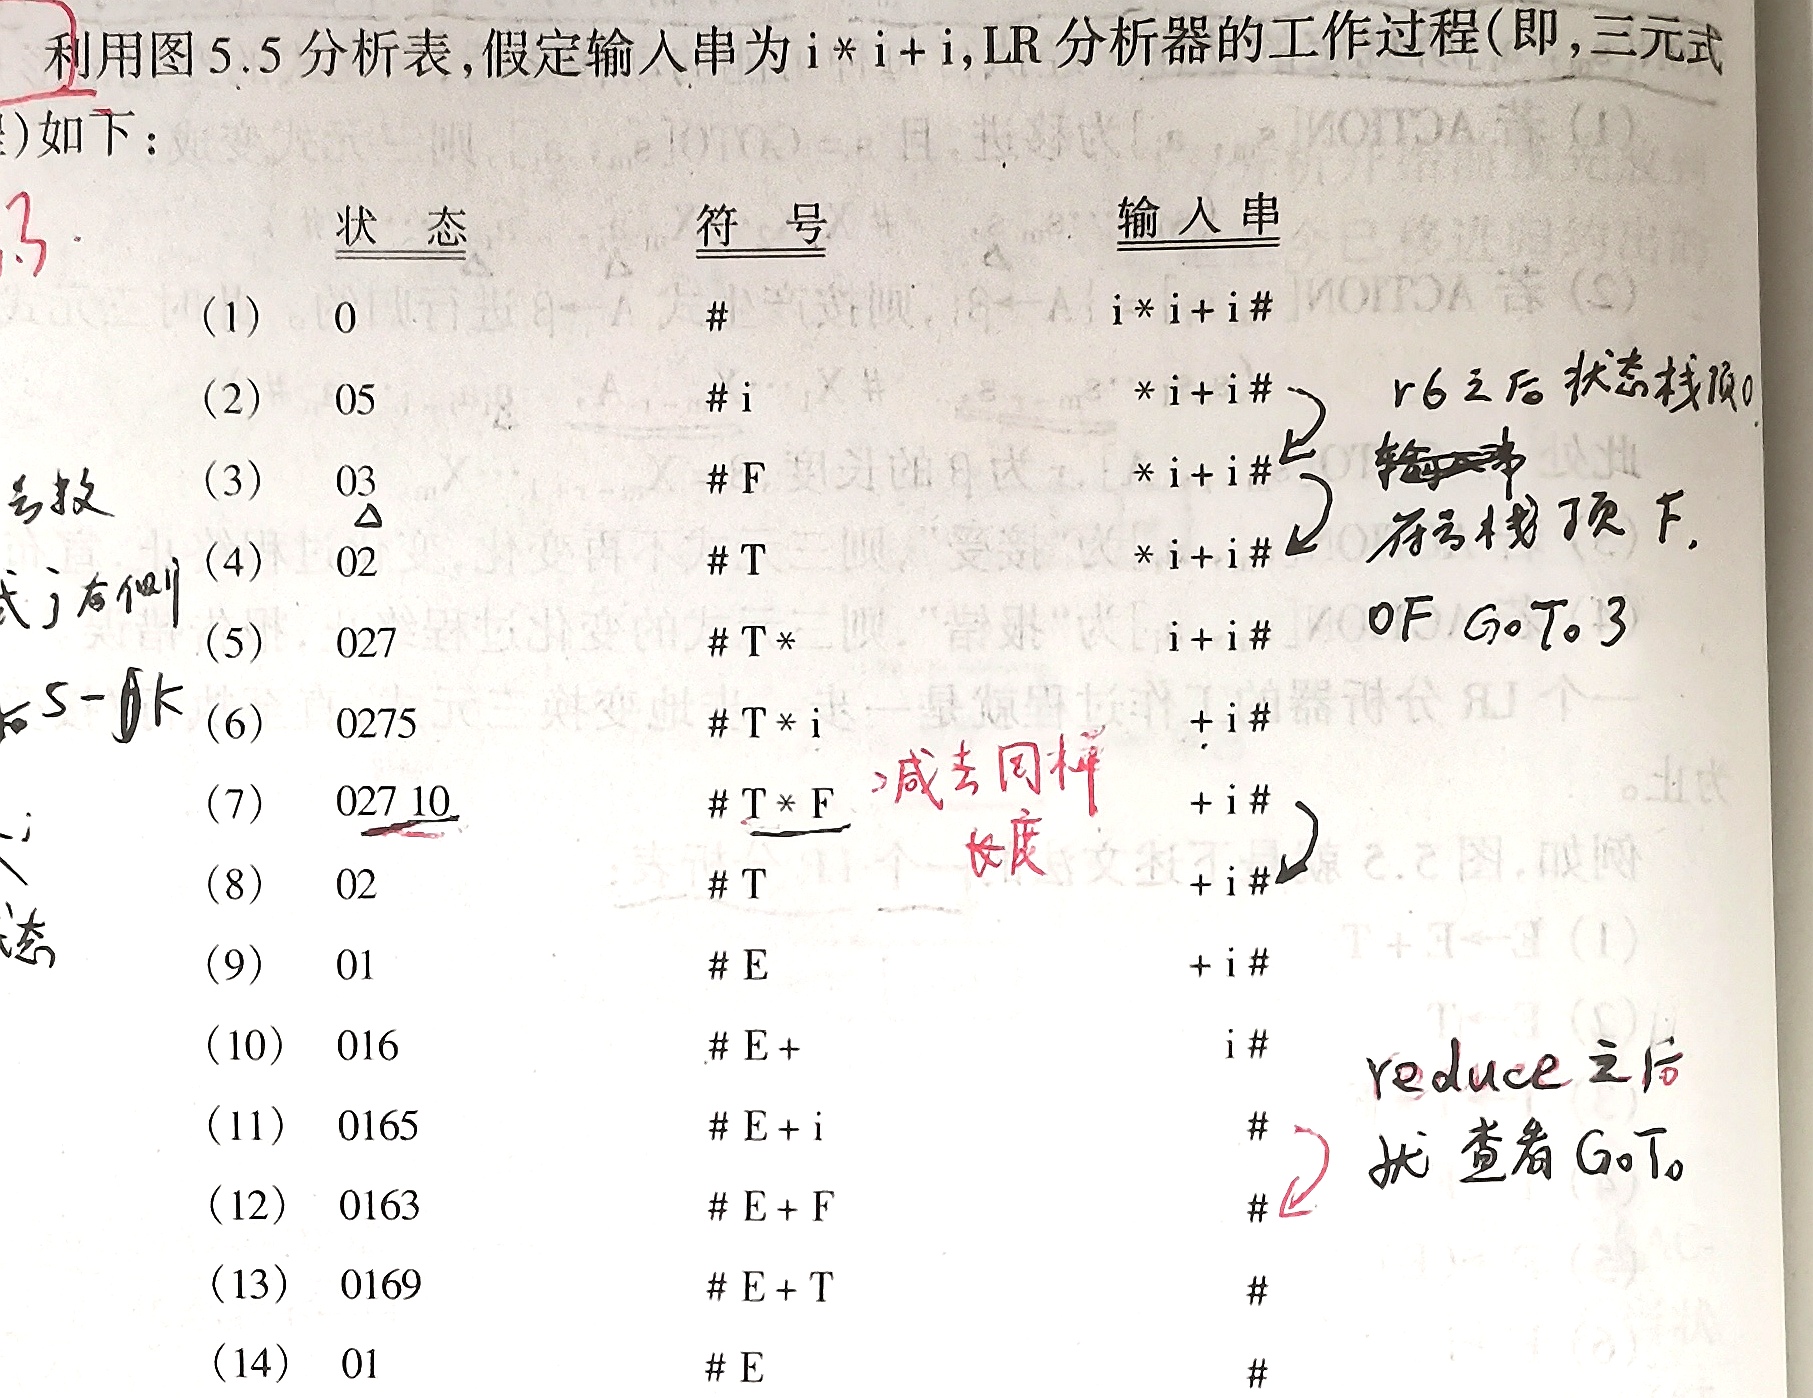 利用图5.5分析表,假定输入串为i*i+i,LR分析器的工作过程(即,三元式
)如下:
状 态 符 号 输 入 串
(1) 0 # i*i+i#
(2) 05 #i *i+i# r6之后状态栈顶0
(3) 03 #F *i+i#
符号栈顶F.
(4) 02 #T *i+i#
式j右侧
(5) 027 #T* i+i# 0F GoTo 3
(6) 0275 #T*i +i#
减去同样
长度
(7) 027 10 #T*F +i#
(8) 02 #T +i#
态
(9) 01 #E +i#
(10) 016 #E+ i#
reduce之后
(11) 0165 #E+i #
状 查看GoTo
(12) 0163 #E+F #
(13) 0169 #E+T #
(14) 01 #E #